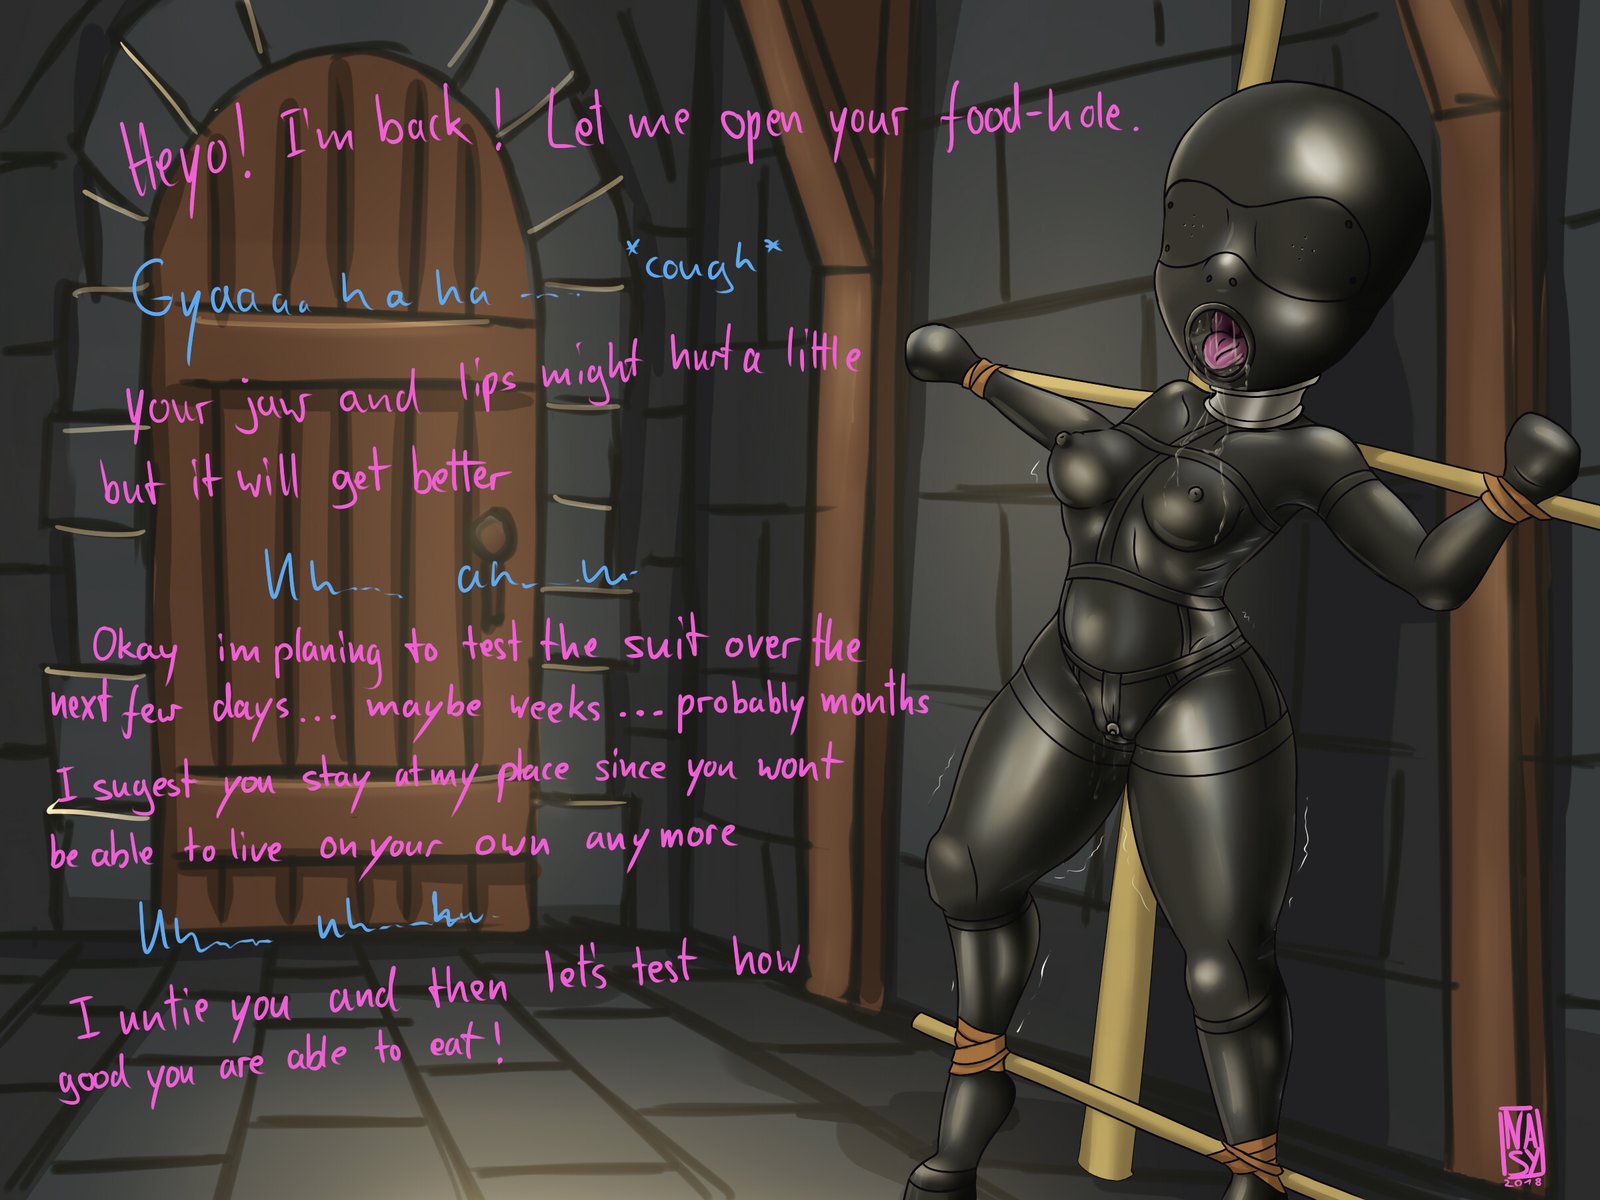 Heyo! I'm back! Let me open your food-hole.
Gyaaaaa ha ha ---- *cough*
your jaw and lips might hurt a little
but it will get better
Uh.... an.....
Okay im planing to test the suit over the
next few days... maybe weeks... probably months
I sugest you stay at my place since you wont
be able to live on your own any more
Uh.... uh....hu..
I untie you and then let's test how
good you are able to eat!
NASY
2018